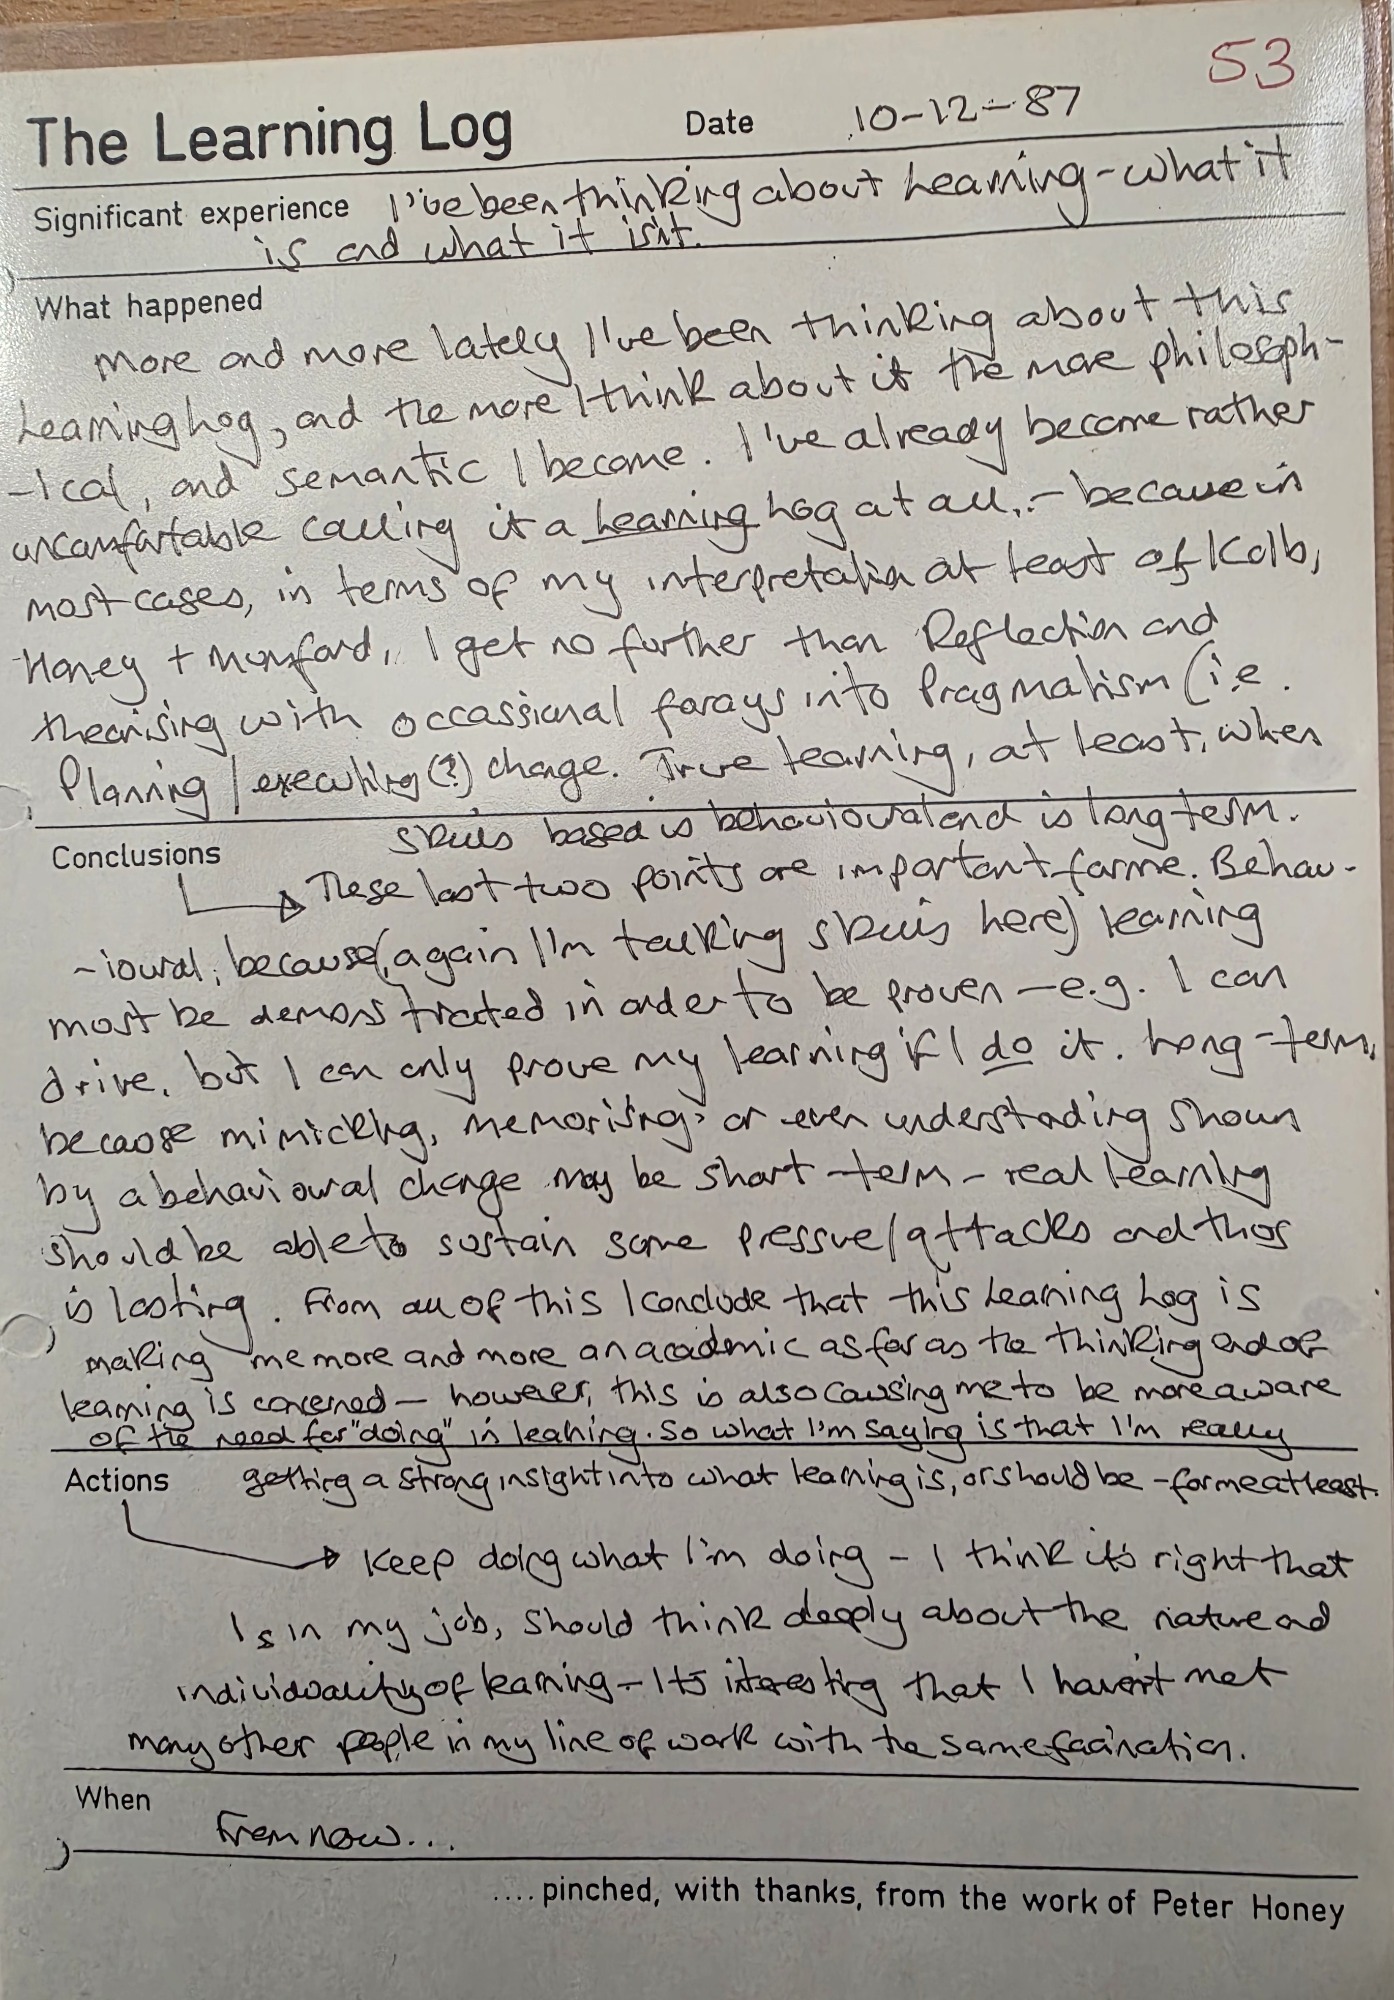 53
The Learning Log Date 10-12-87
Significant experience I've been thinking about Learning - what it
is and what it isn't.
What happened
More and more lately I've been thinking about this
Learning Log, and the more I think about it the more philosoph-
-ical, and semantic I become. I've already become rather
uncomfortable calling it a Learning Log at all, - because in
most cases, in terms of my interpretation at least of Kolb,
Honey + Mumford, I get no further than Reflection and
theorising with occassional forays into Pragmatism (i.e.
Planning / executing (?) change. True learning, at least, when
skills based is behavioural and is long term.
Conclusions
These last two points are important for me. Behav-
-ioural, because (again I'm talking skills here) learning
must be demonstrated in order to be proven - e.g. I can
drive, but I can only prove my learning if I do it. Long-term,
because mimicking, memorising, or even understanding shown
by a behavioural change may be short-term - real learning
should be able to sustain some pressure/attacks and thus
is lasting. From all of this I conclude that this Learning Log is
making me more and more an academic as far as the thinking end of
learning is concerned - however, this is also causing me to be more aware
of the need for "doing" in learning. So what I'm saying is that I'm really
getting a strong insight into what learning is, or should be - for me at least.
Actions
Keep doing what I'm doing - I think it's right that
I, in my job, should think deeply about the nature and
individuality of learning - It's interesting that I haven't met
many other people in my line of work with the same facination.
When
From now...
.... pinched, with thanks, from the work of Peter Honey